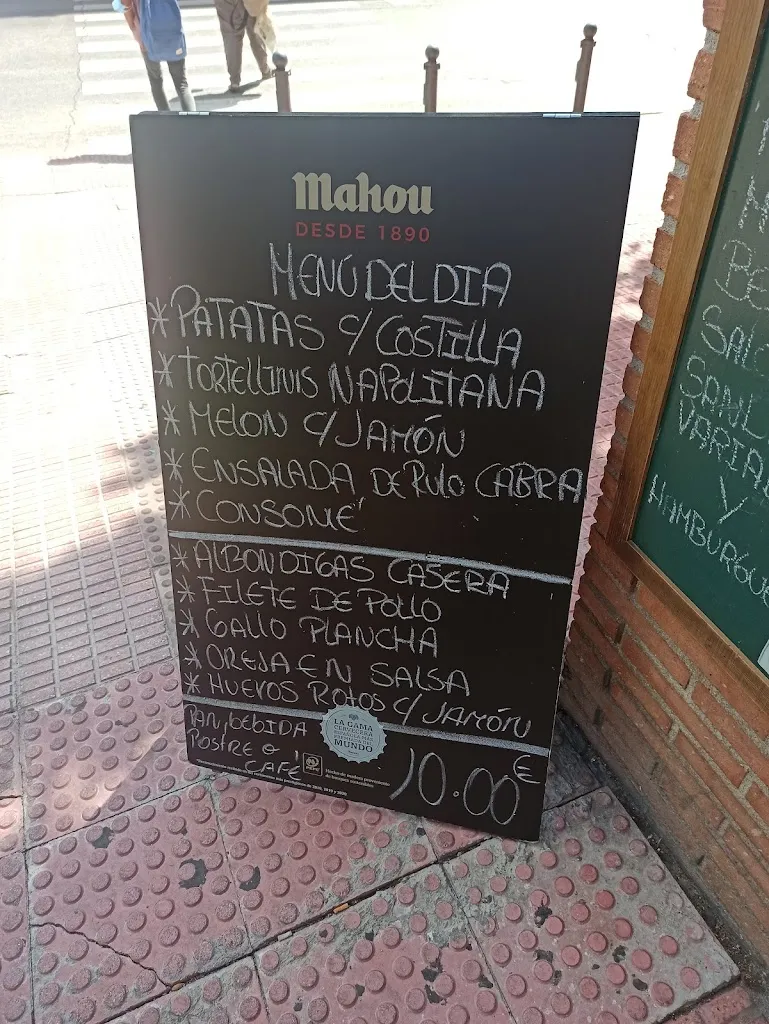 Mahou
DESDE 1890
MENÚ DEL DIA
*PATATAS C/ COSTILLA
*TORTELLINIS NAPOLITANA
*MELON C/ JAMÓN
*ENSALADA DE RULO CABRA
*CONSOMÉ
*ALBONDIGAS CASERA
*FILETE DE POLLO
*GALLO PLANCHA
*OREJA EN SALSA
*HUEVOS ROTOS C/ JAMÓN
PAN, BEBIDA
POSTRE O
CAFÉ
10.00 €
LA GAMA
CERVECERA
MUNDO
BE
SAL
VARIA
Y
HAMBURGUE